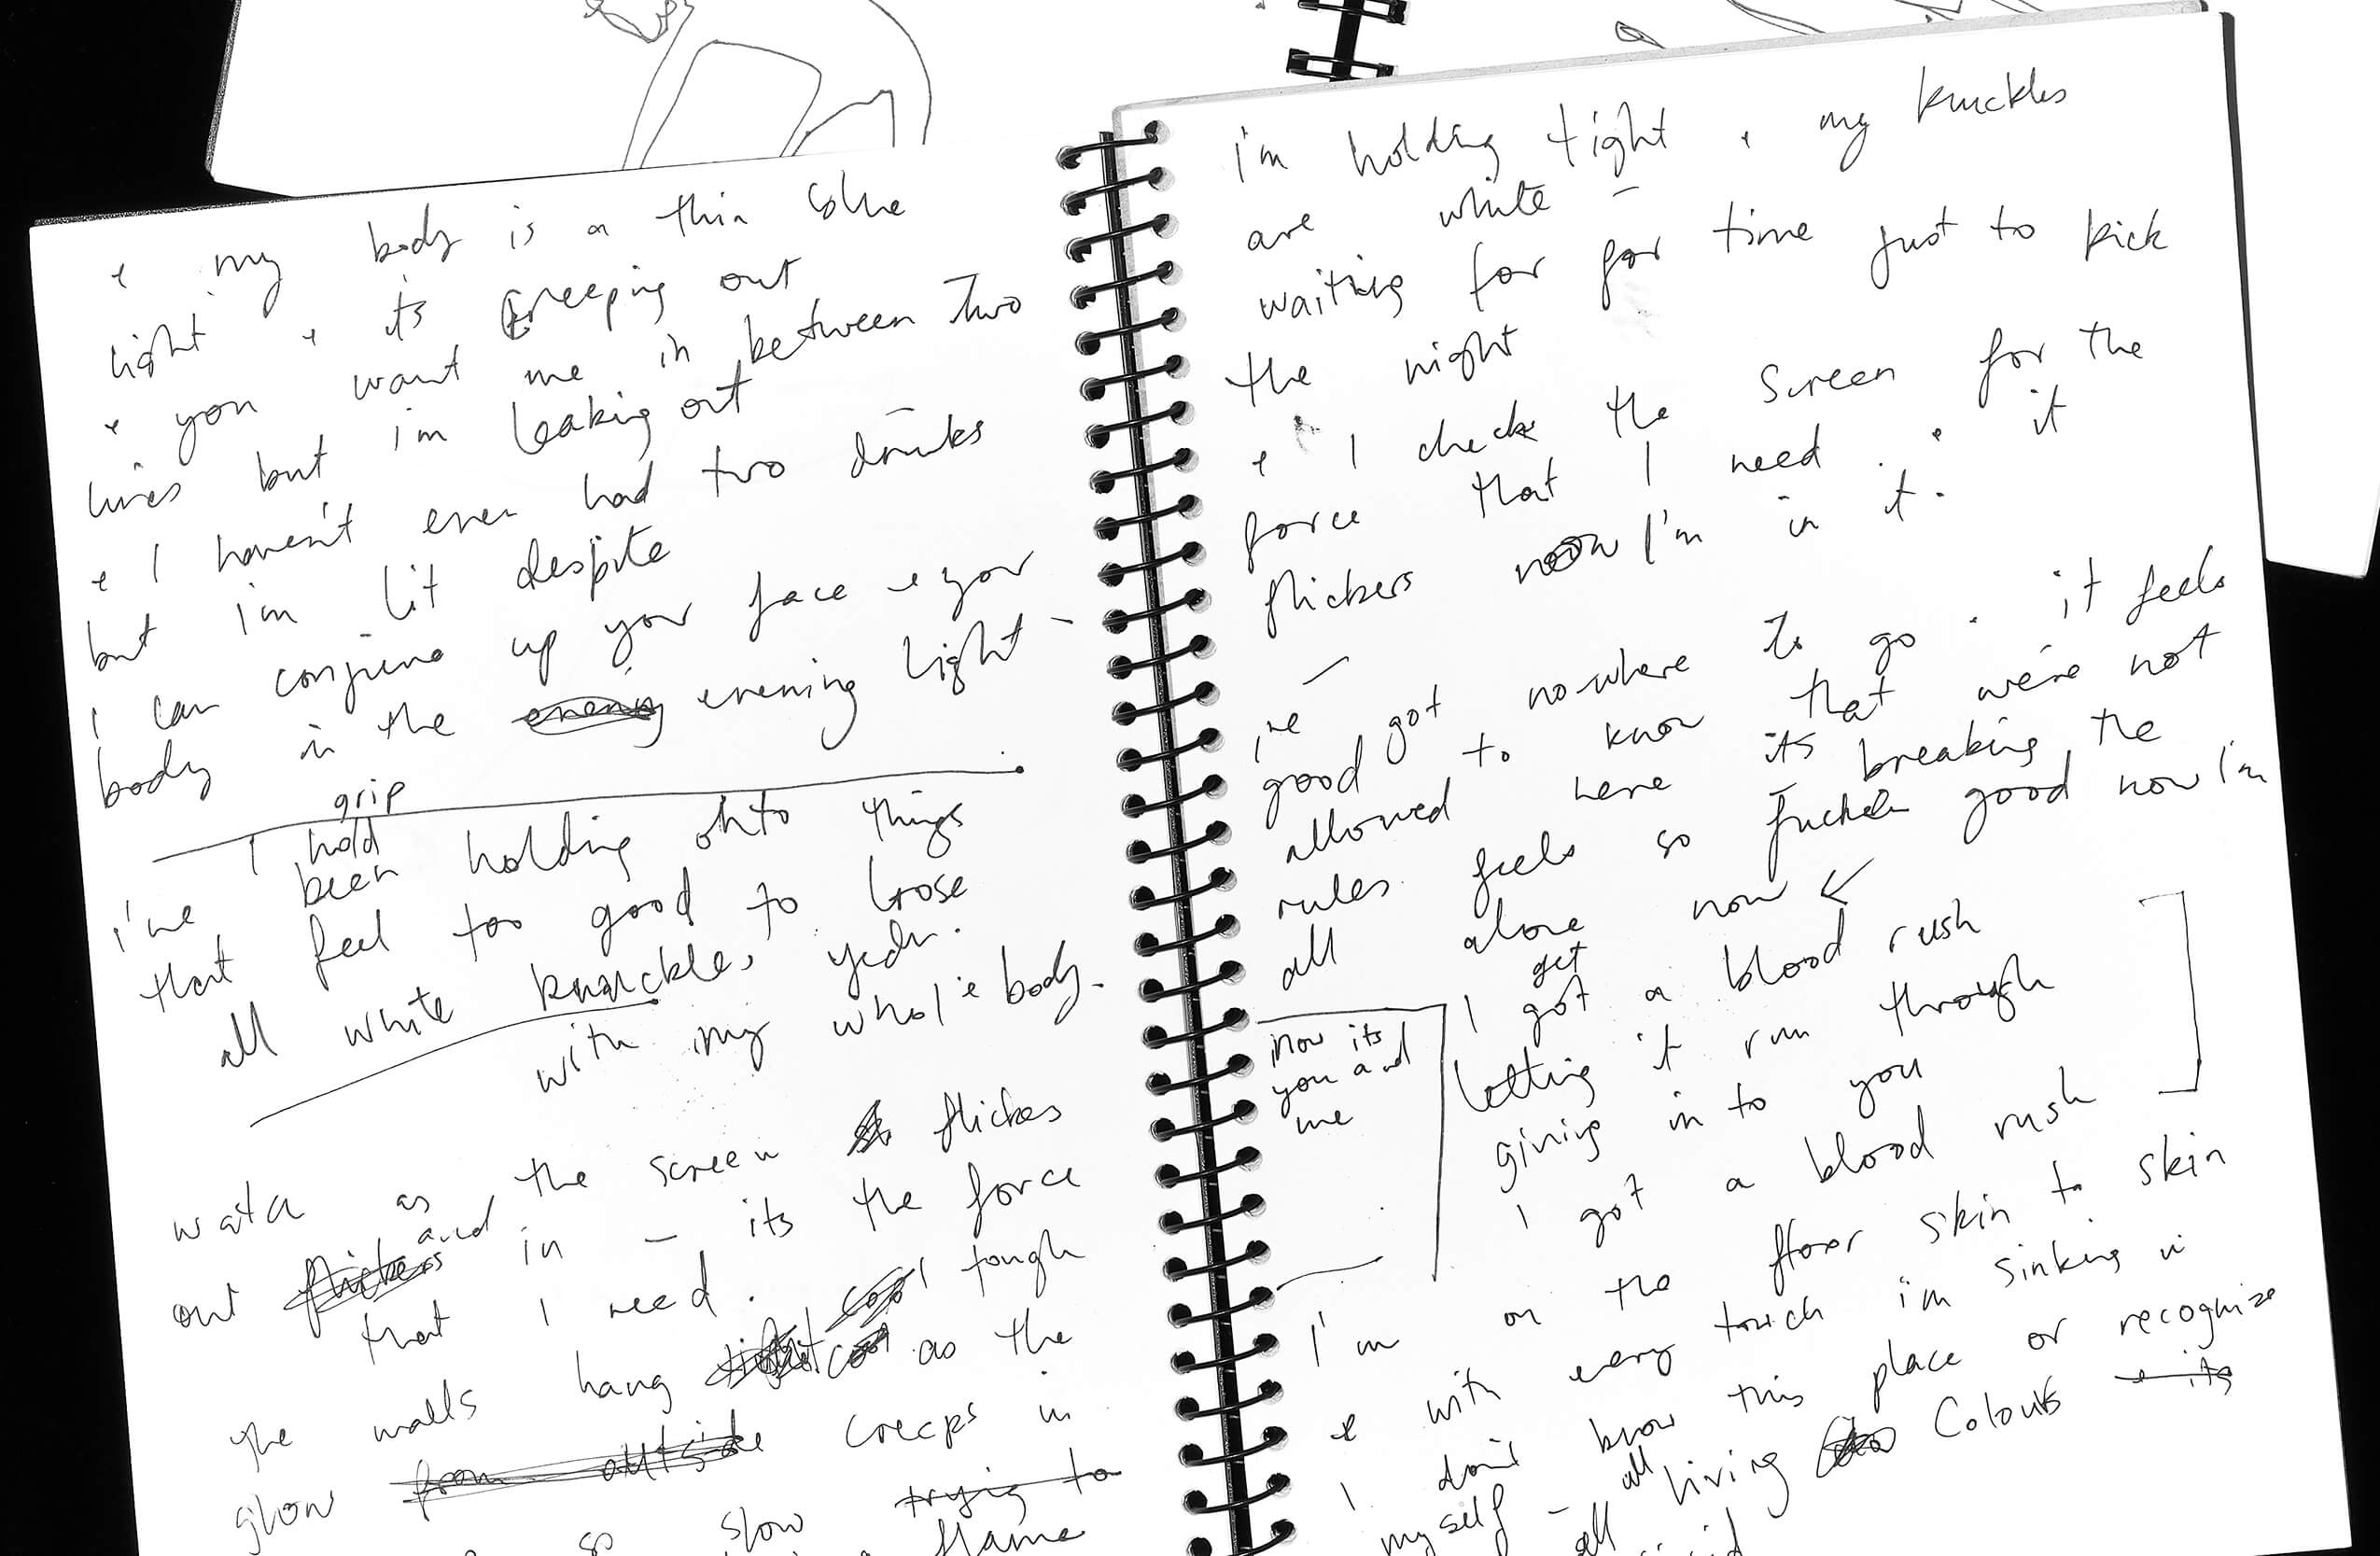 & my body is a thin blue
light & its creeping out
& you want me in between two
lines but i'm leaking out
& I haven't even had two drinks
but i'm lit despite
I can conjure up your face & your
body in the evening light -
grip
I hold
i've been holding onto things
that feel too good to lose
all white knuckles, yeah.
with my whole body.
watch as the screen flickers
out and in - its the force
that I need.
the walls hang tough
as the
glow from outside creeps in
so slow trying to
flame
i'm holding tight & my knuckles
are white -
waiting for for time just to kick
the night
& I check the screen for the
force that I need & it
flickers now I'm in it.
i've got nowhere to go. it feels
good to know that we're not
allowed here its breaking the
rules. feels so fucken good now I'm
all alone now
get
I got a blood rush
letting it run through
giving in to you
I got a blood rush
now its
you and
me
I'm on the floor skin to skin
& with every touch i'm sinking in
I don't know this place or recognize
myself - all living colours & its
all